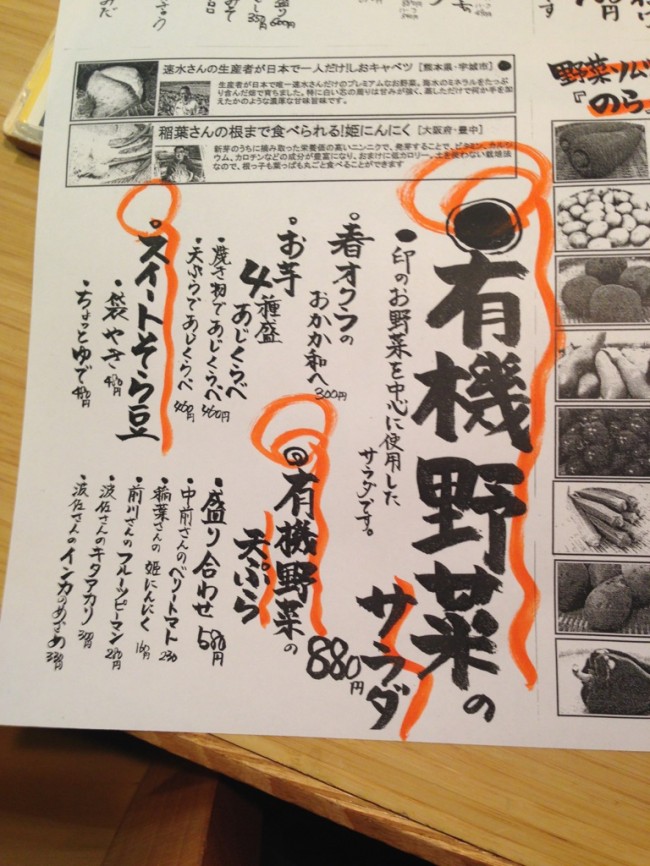 速水さんの生産者が日本で一人だけ!しおキャベツ [熊本県・宇城市] ●
生産者が日本で唯一速水さんだけのプレミアムなお野菜。海水のミネラルをたっぷ
り含んだ畑で育ちました。特に白い芯の周りは甘みが強く、蒸しただけで何か手を加
えたかのような濃厚な甘味旨味です。
稲葉さんの根まで食べられる!姫にんにく [大阪府・豊中]
新芽のうちに摘み取った栄養価の高いニンニクで、発芽することで、ビタミン、カルシ
ウム、カロチンなどの成分が豊富になり、おまけに低カロリー。土を使わない栽培法
なので、根っ子も葉っぱも丸ごと食べることができます
野菜ソムリエ
『のら
●有機野菜の
サラダ
880円
●印のお野菜を中心に使用した
サラダです。
・春オクラの
おかか和へ 300円
・お芋
4種盛
あじくらべ
・焼き物であじくらべ 460円
・天ぷらであじくらべ 460円
・スイートそら豆
・袋やき 480円
・ちょっとゆで 480円
◎有機野菜の
天ぷら
・盛り合わせ 580円
・中前さんのベリートマト 230
・稲葉さんの姫にんにく 160円
・前川さんのフルーツピーマン 280円
・波佐さんのキタアカリ 330円
・波佐さんのインカのめざめ 330円